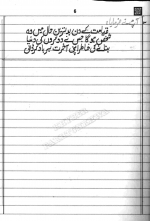 آپؐ نے فرمایا:
قیامت کے دن بدترین حال میں وہ
شخص ہوگا جس نے دوسروں کی دنیا
بنانے کی خاطر اپنی آخرت برباد کر ڈالی